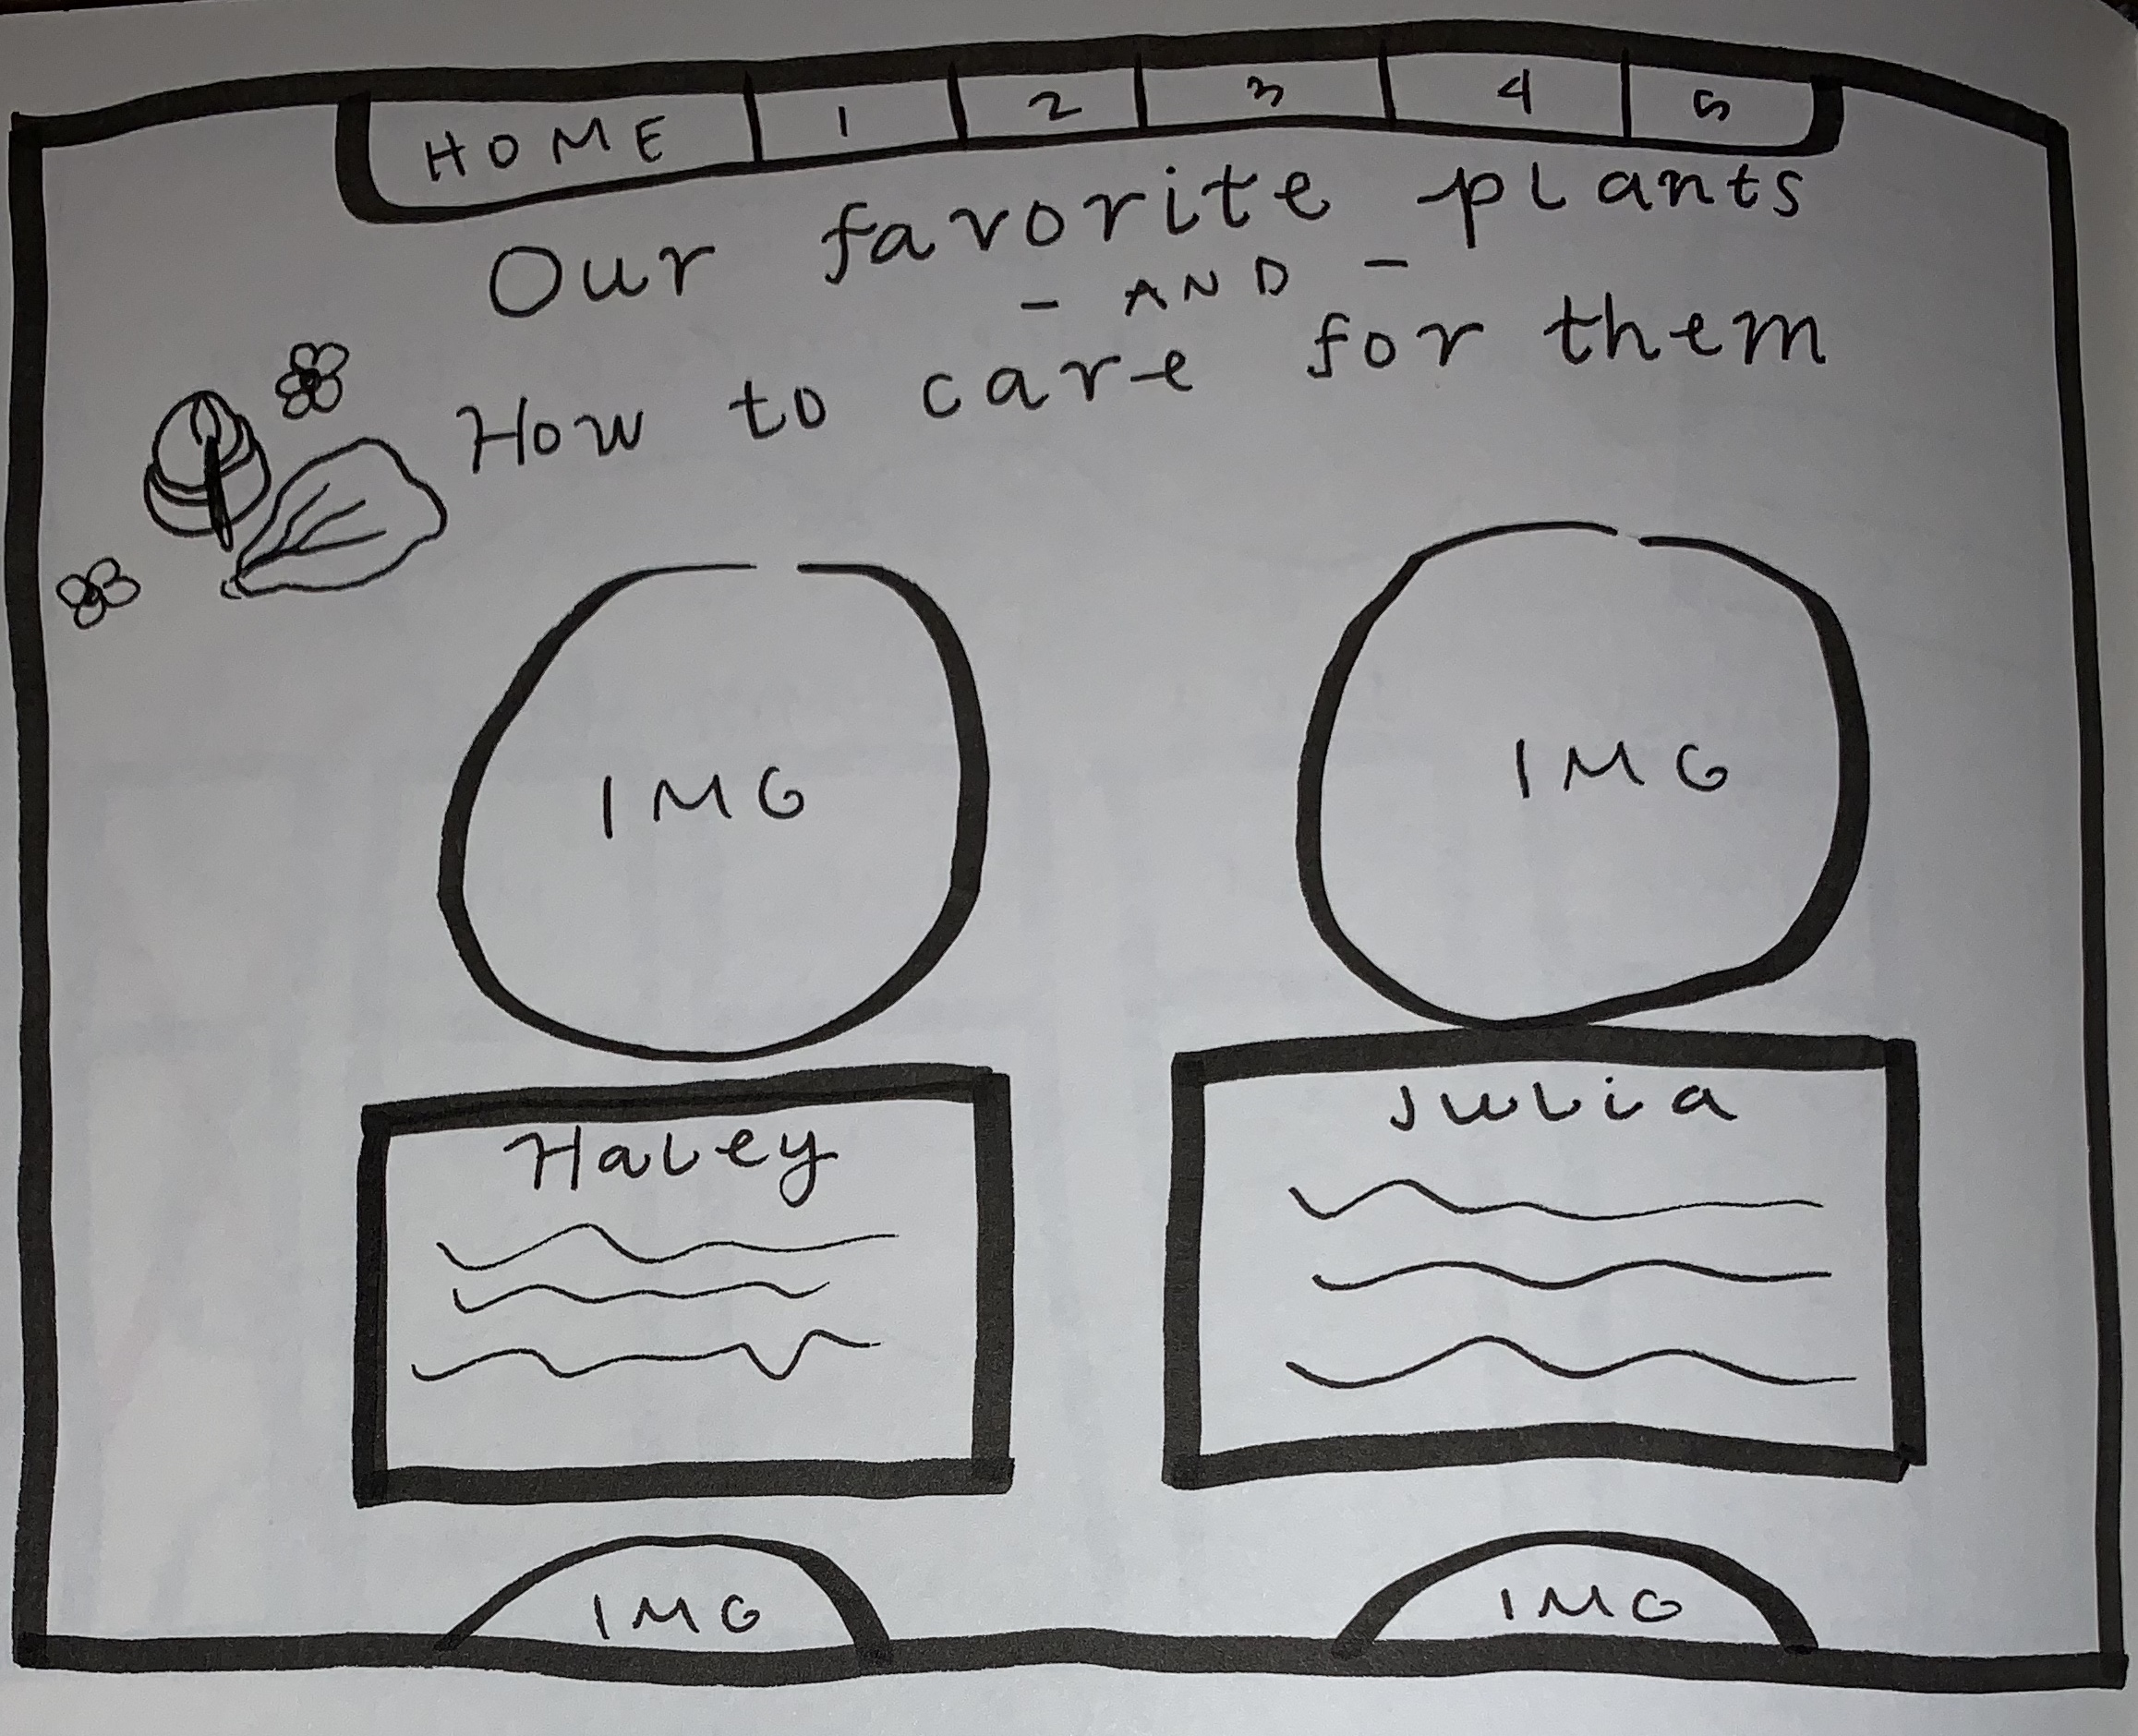 HOME 1 2 3 4 5
Our favorite plants
- AND -
How to care for them
IMG IMG
Haley
Julia
IMG IMG